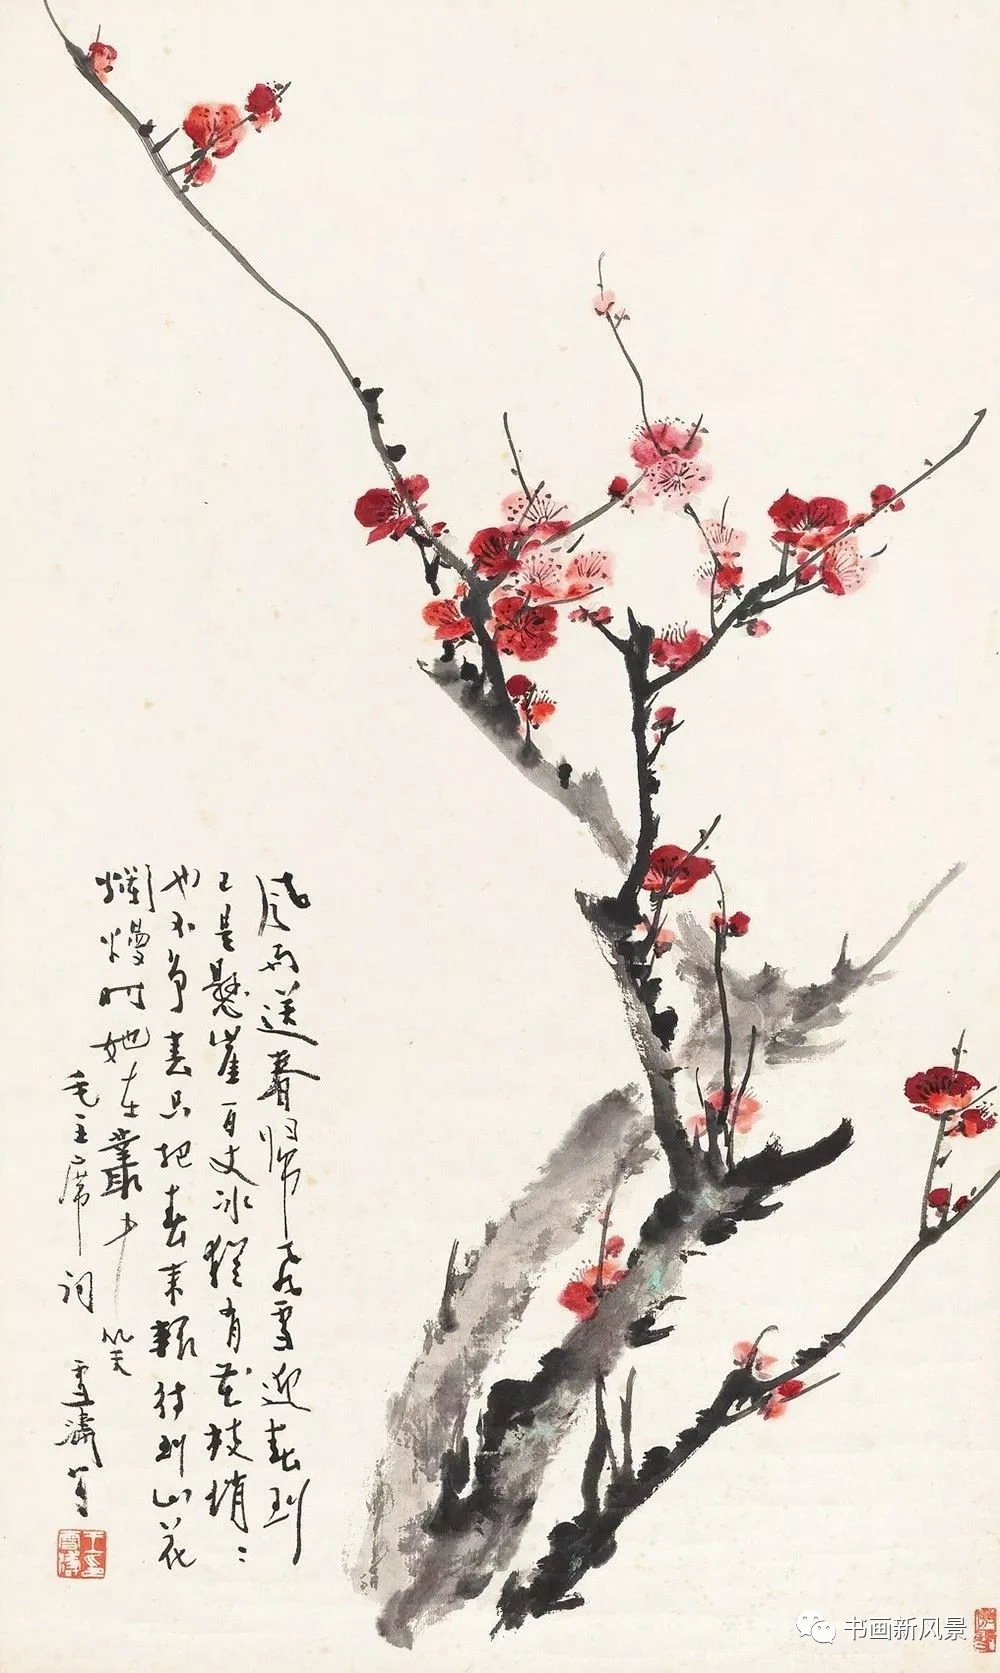 風雨送春歸飛雪迎春到
已是懸崖百丈冰猶有花枝俏〻
也不争春只把春来報待到山花
爛熳时她在叢中笑
毛主席词 雪濤写
王雪濤印
书画新风景